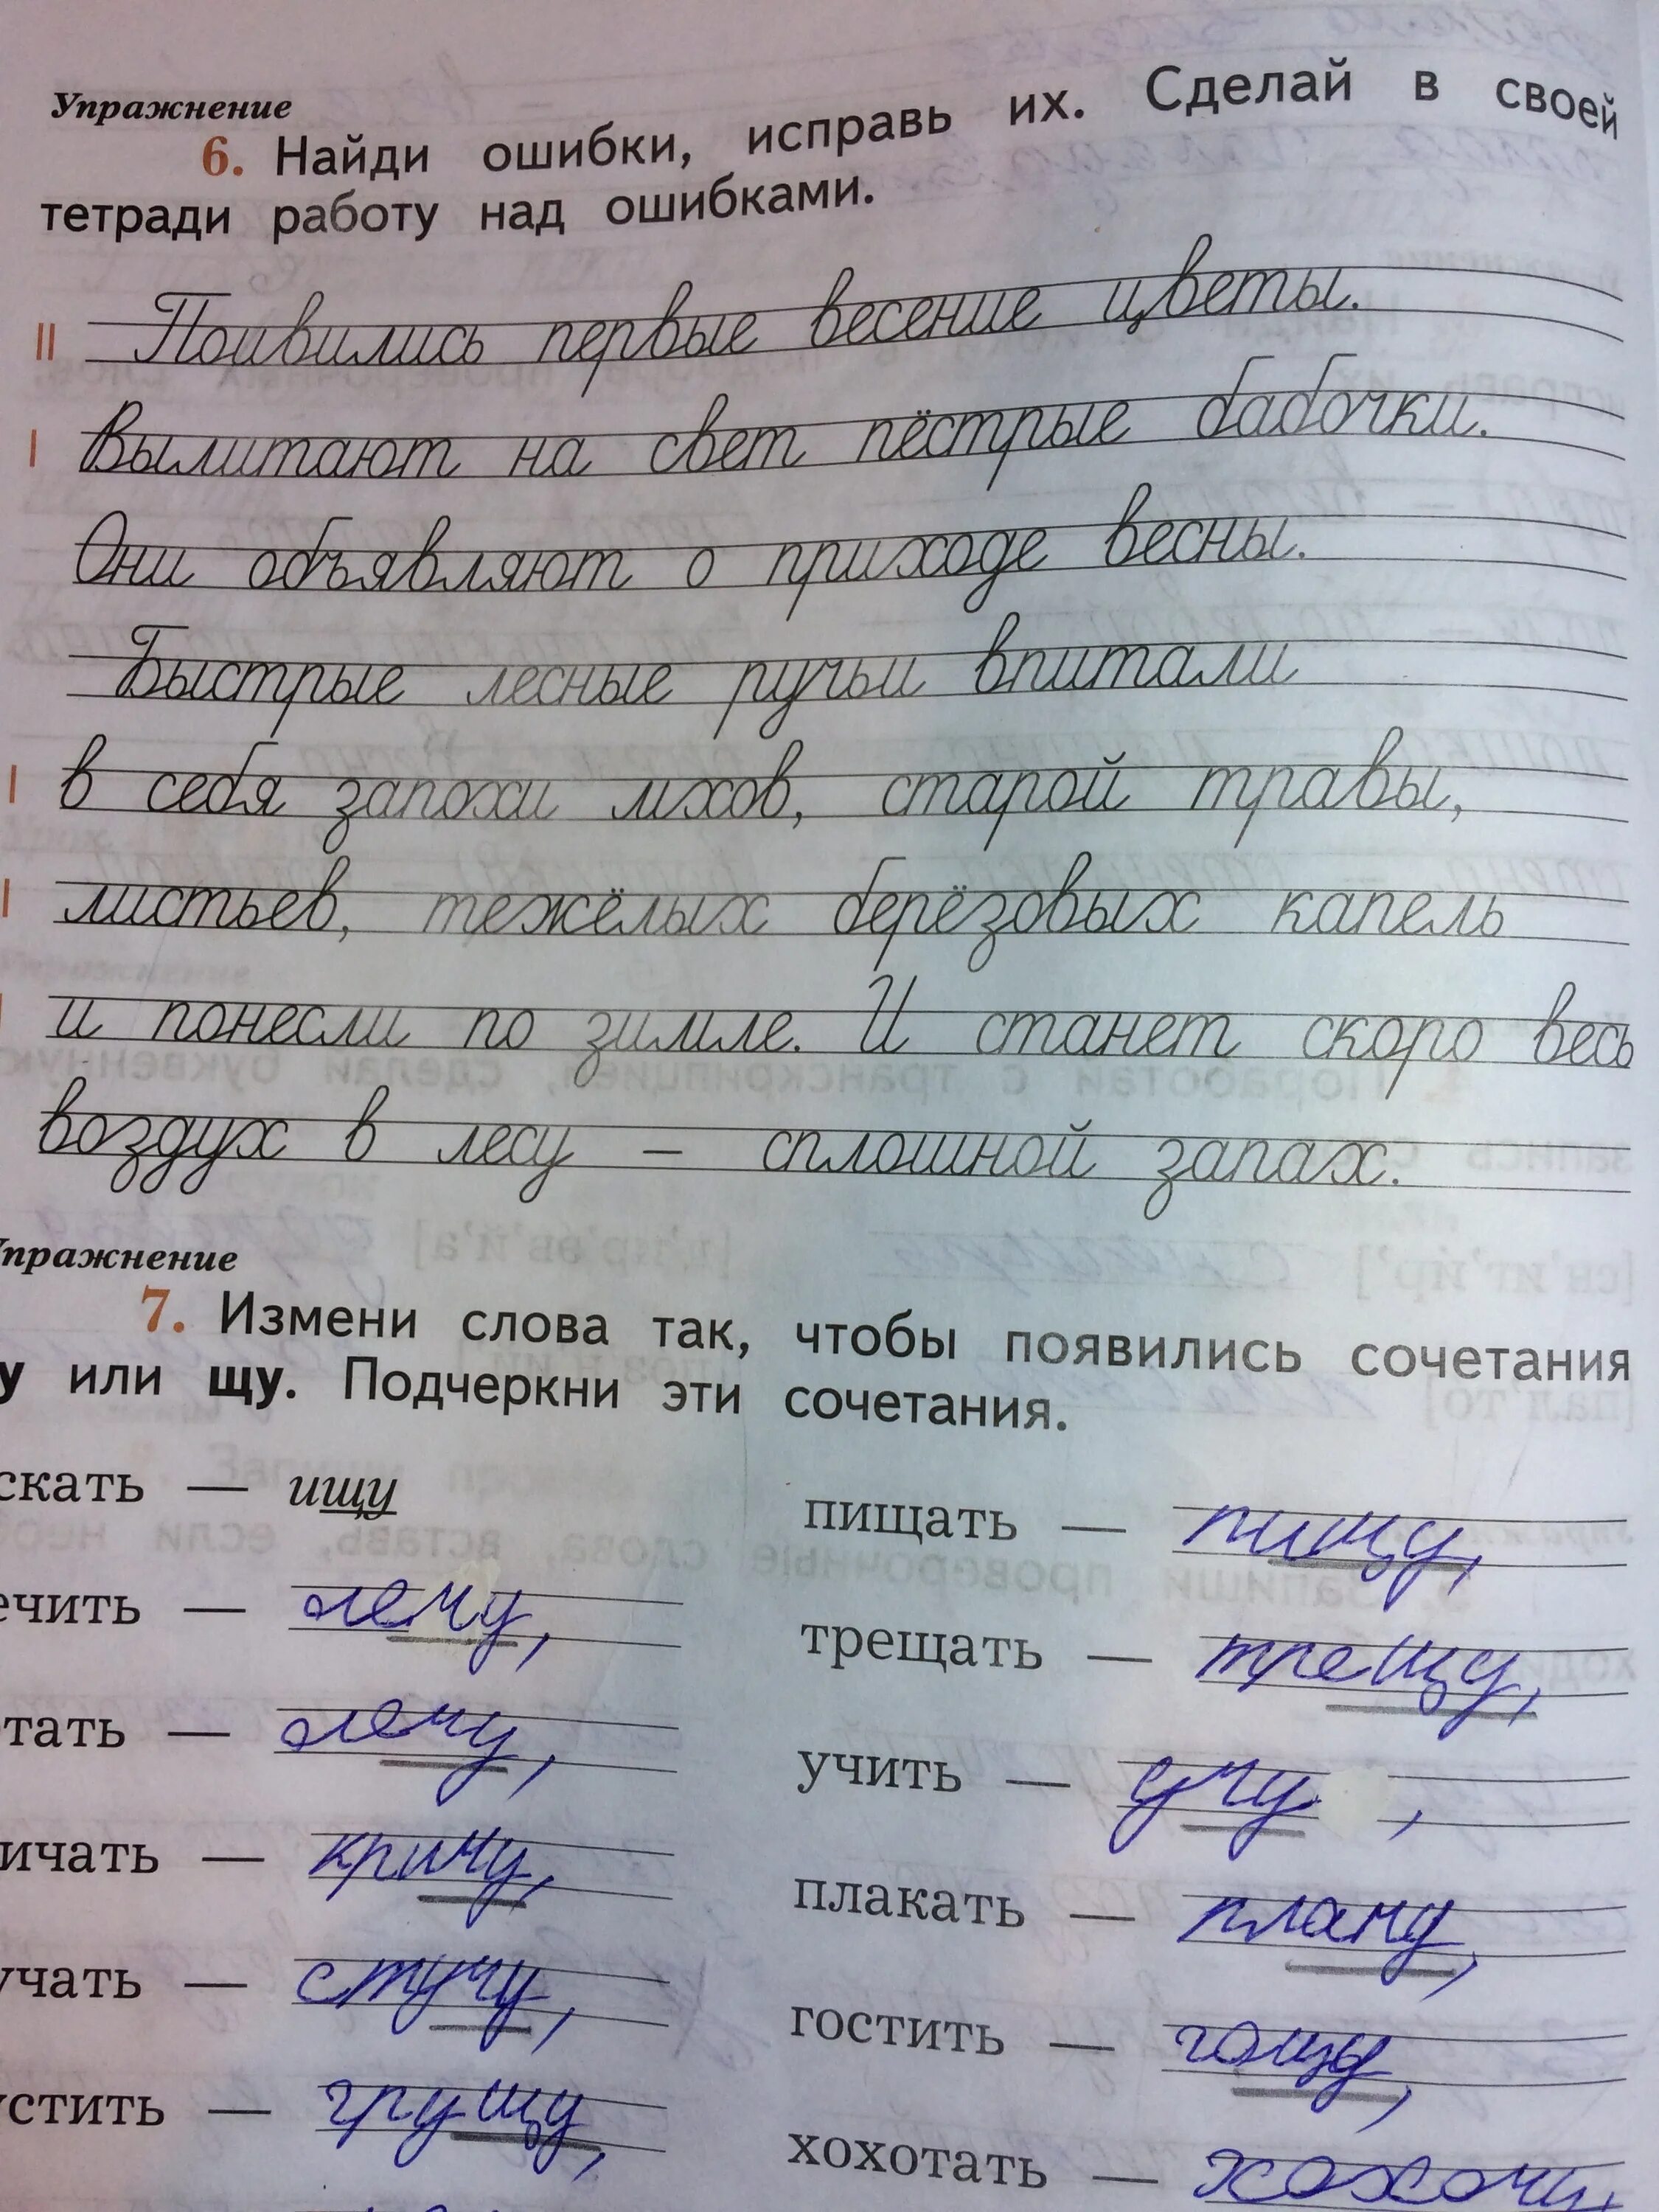 Упражнение
6. Найди ошибки, исправь их. Сделай в своей
тетради работу над ошибками.
II Поивились первые весение цветы.
I Вылитают на свет пёстрые бабочки.
Они объявляют о приходе весны.
Быстрые лесные ручьи впитали
I в себя запохи мхов, старой травы,
I листьев, тежёлых берёзовых капель
I и понесли по зимле. И станет скоро весь
воздух в лесу – сплошной запах.
Упражнение
7. Измени слова так, чтобы появились сочетания
у или щу. Подчеркни эти сочетания.
скать — ищу
пищать — пищу,
ечить — лечу,
трещать — трещу,
тать — лечу,
учить — учу ,
ичать — кричу,
плакать — плачу,
учать — стучу,
гостить — гощу,
устить — грущу,
хохотать — хохочу,